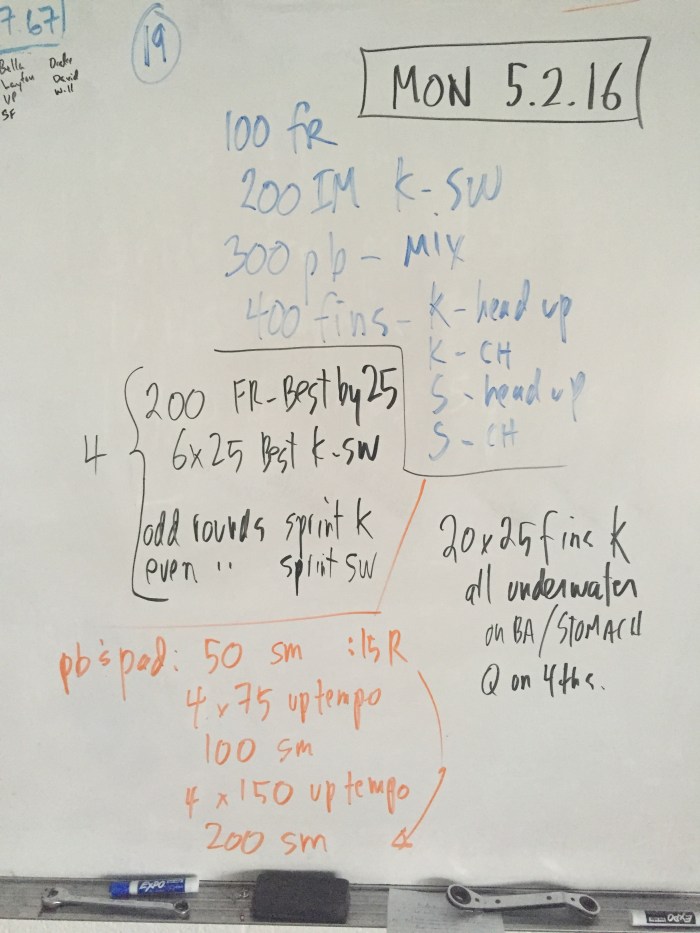 7.67
Bella
Layton David
VP Will
SF
19
MON 5.2.16
100 fR
200 IM K-SW
300 pb - MIX
400 fins - K-head up
K-CH
S-head up
S-CH
4
200 FR-Best by 25
6x25 Best K-SW
odd rounds sprint K
even " sprint SW
20x25 fins K
all underwater
on BA/STOMACH
Q on 4ths.
pb's pad: 50 sm :15 R
4 x 75 up tempo
100 sm
4 x 150 up tempo
200 sm
EXPO
EXPO